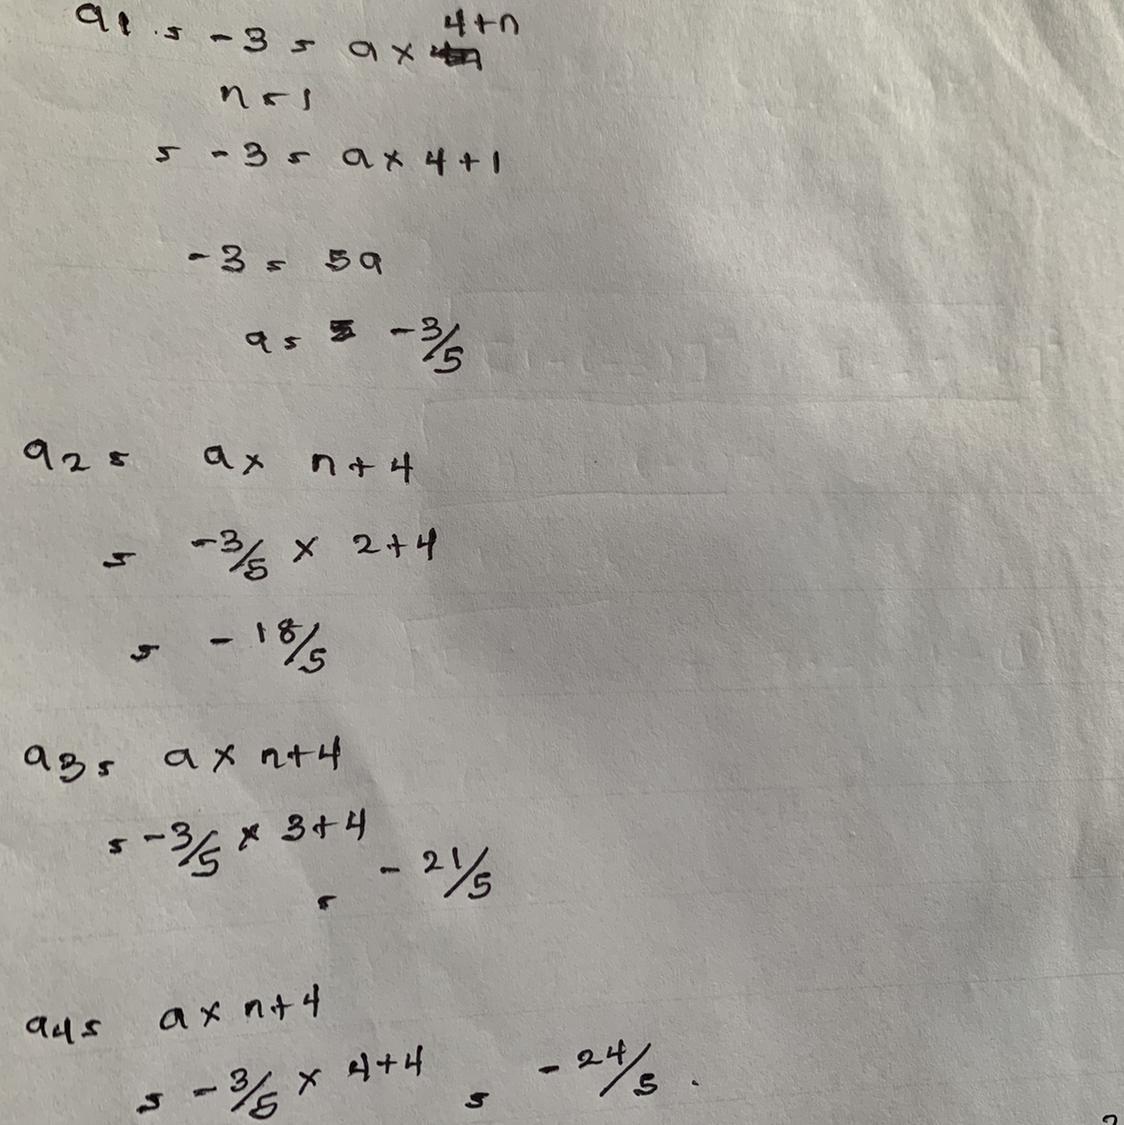 a1 = -3 = a × 4+n
n = 1
= -3 = a × 4+1
-3 = 5a
a = -3/5
a2 = a × n+4
= -3/5 × 2+4
= -18/5
a3 = a × n+4
= -3/5 × 3+4
= -21/5
a4 = a × n+4
= -3/5 × 4+4 = -24/5.